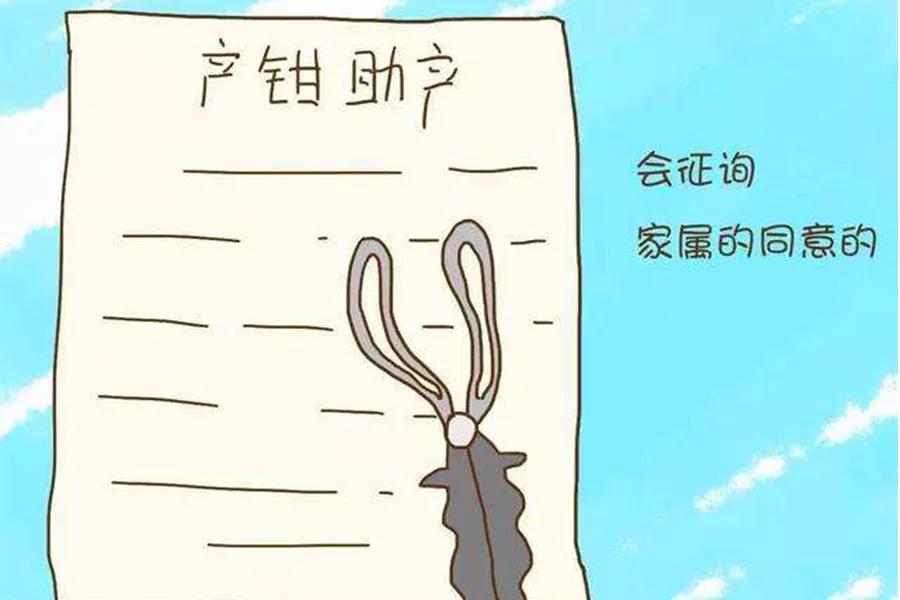 产钳助产
会征询
家属的同意的